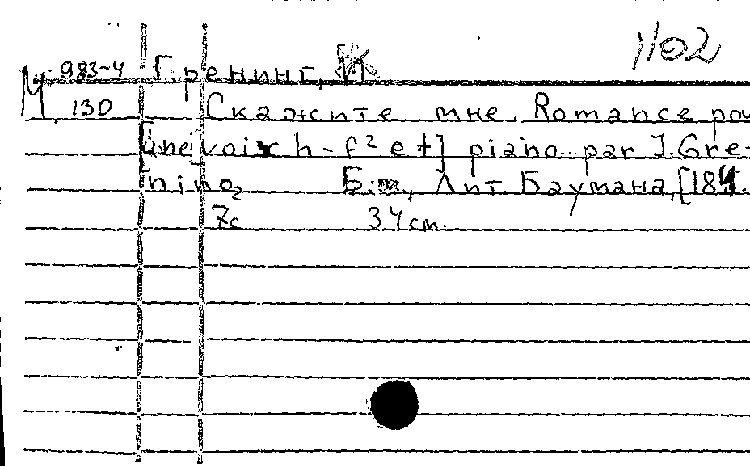 1102
М 983-4 Гренинг, И
130 Скажите мне. Romance pou
[une voix h-f² et] piano par J. Gre-
ning Б.м, Лит Баумана, [184
7с 34 cm.